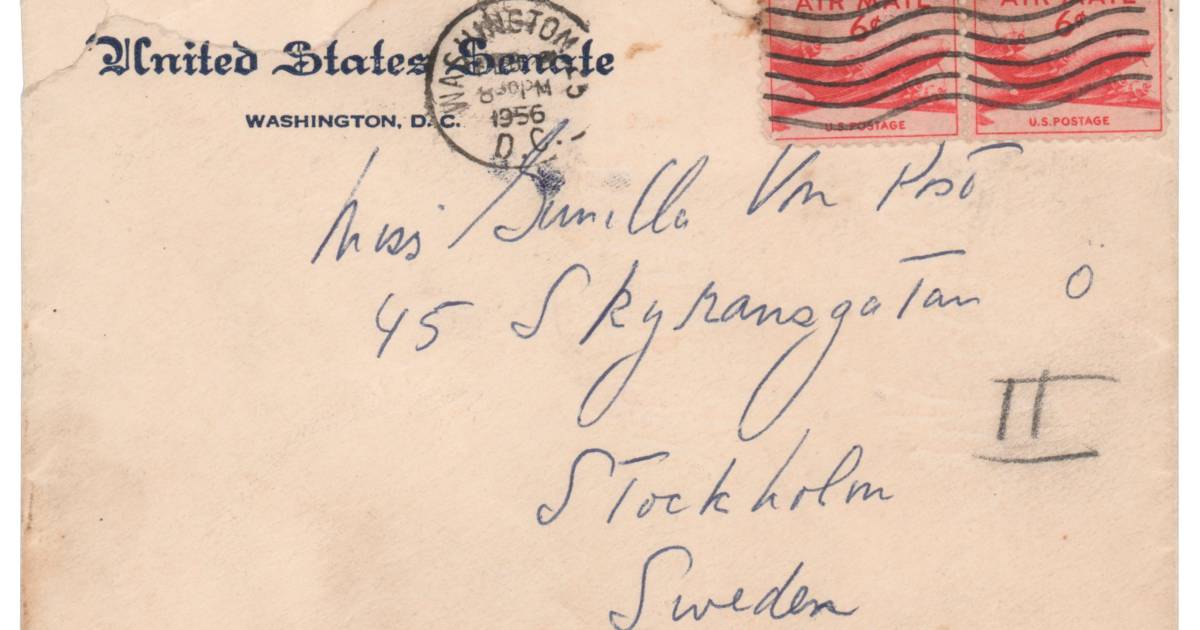 United States Senate
WASHINGTON, D. C.
WASHINGTON
8 30 PM
1956
D. C.
AIR MAIL
6¢
U.S. POSTAGE
AIR MAIL
6¢
U.S. POSTAGE
Miss Gunilla Von Post
45 Skyransgatan Ö
II
Stockholm
Sweden